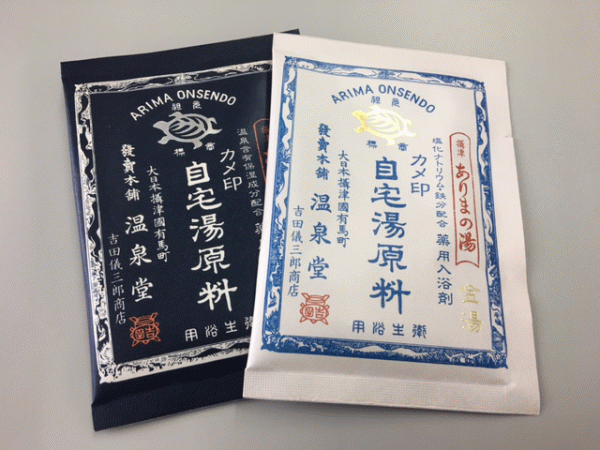 ARIMA ONSENDO
温泉含有保湿成分配合 薬
カメ印
自宅湯原料
大日本攝津國有馬町
發賣本舗 温泉堂
吉田儀三郎商店
衛生浴用
ARIMA ONSENDO
攝津 ありまの湯
金湯
塩化ナトリウム・鉄分配合 薬用入浴剤
カメ印
自宅湯原料
大日本攝津國有馬町
發賣本舗 温泉堂
吉田儀三郎商店
衛生浴用